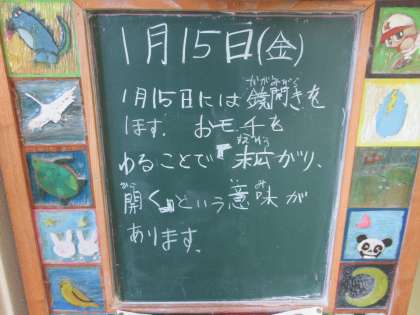 1月15日(金)
かがみびら
1月15日には鏡開きを
します。おモチを
すえひろ
わることで「末広がり、
ひら い み
開く」という意味が
あります。